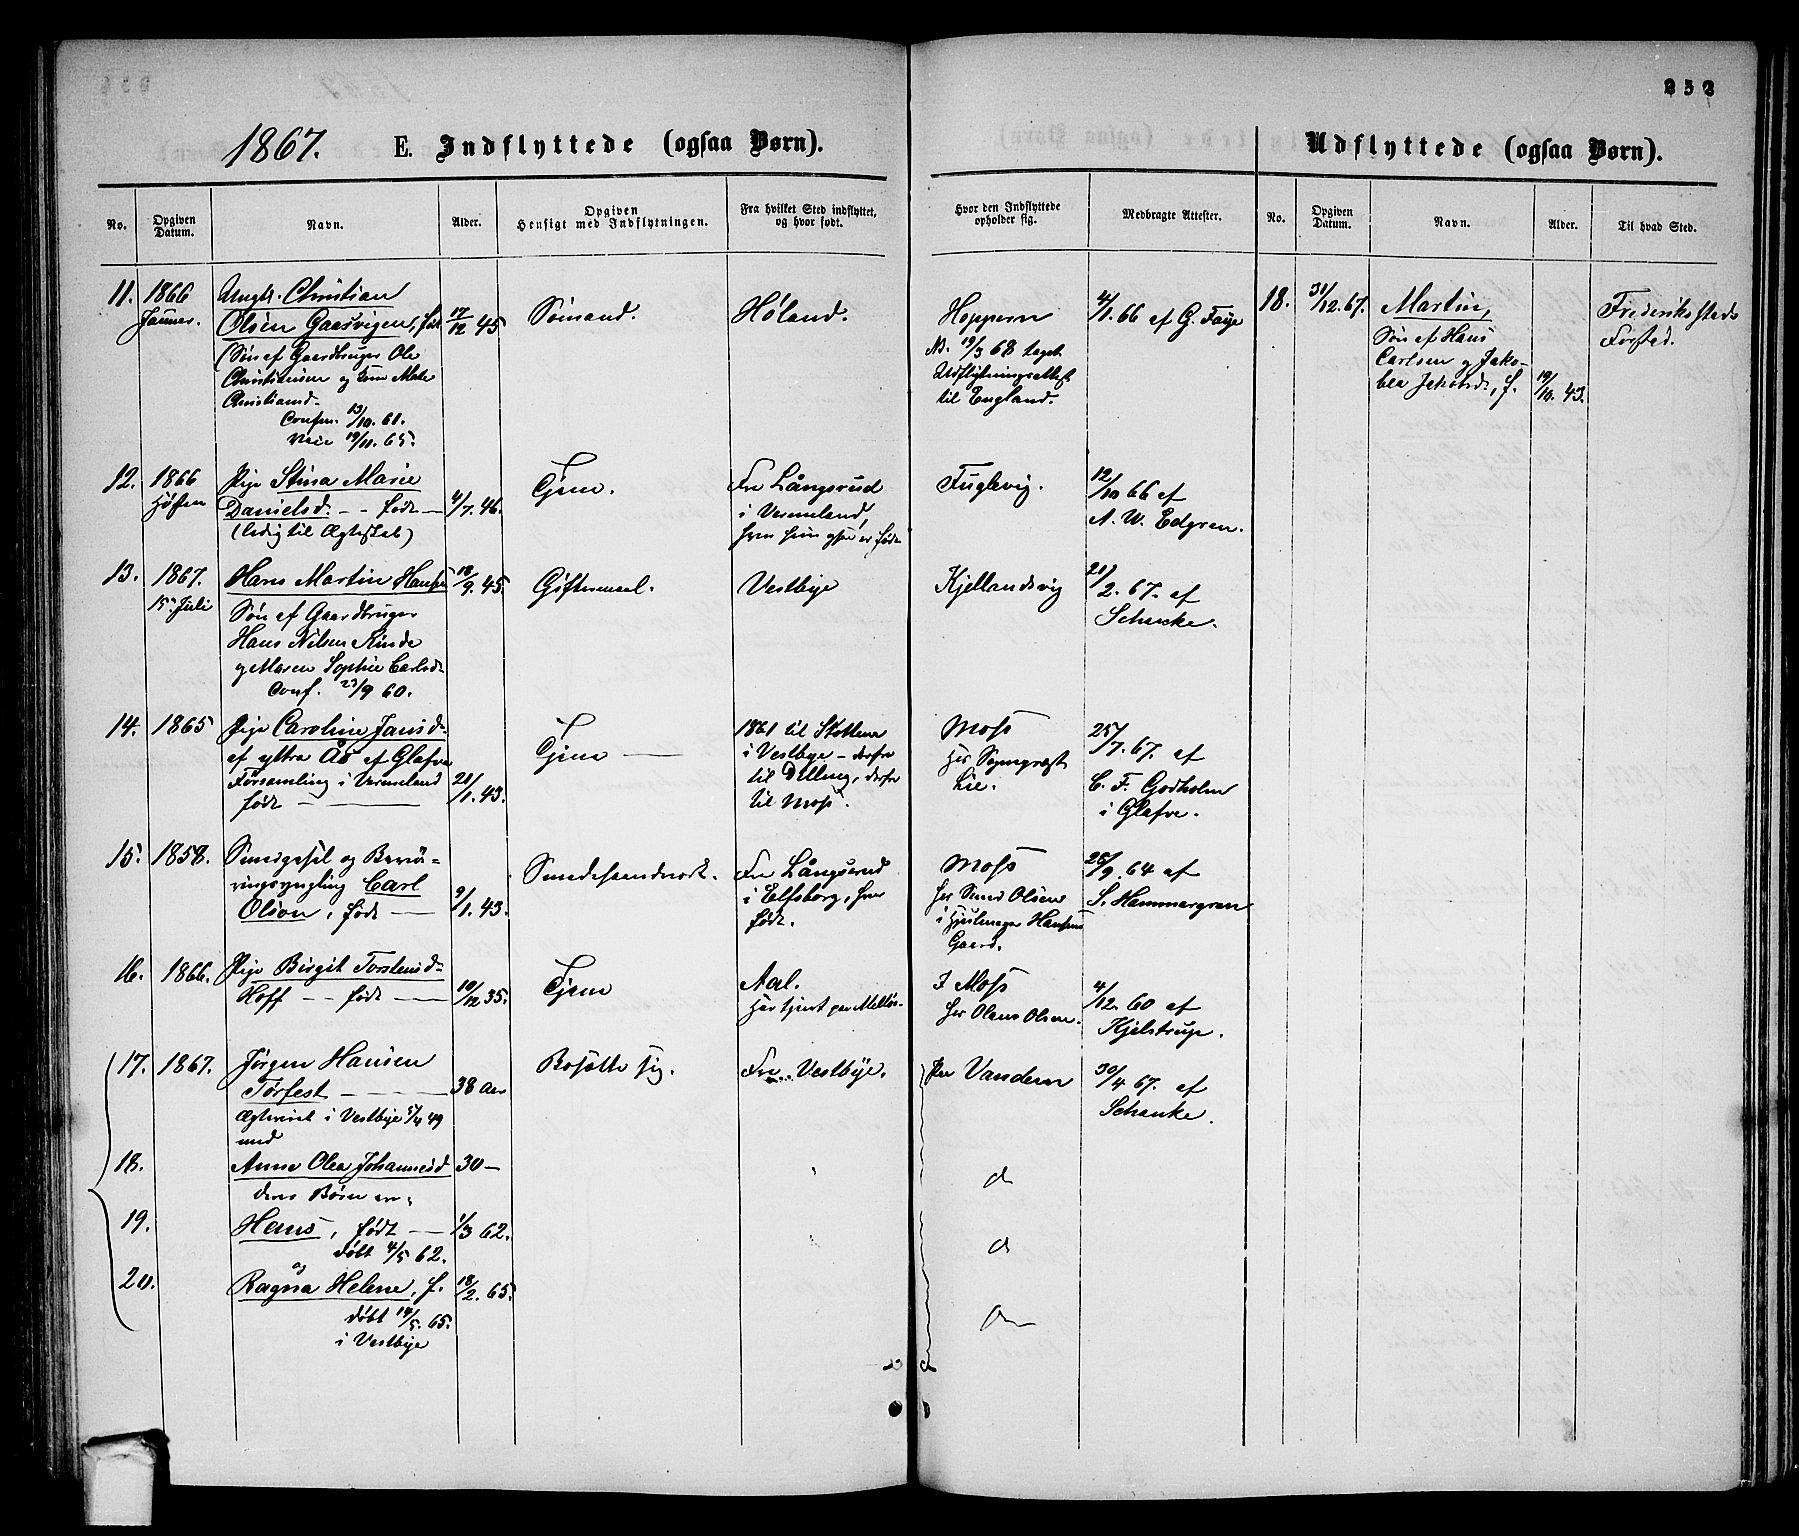 252
1867. E. Indflyttede (ogsaa Børn).
Udflyttede (ogsaa Børn).
No.
Opgiven Datum.
Navn.
Alder.
Opgiven
Hensigt med Indflytningen.
Fra hvilket Sted indflyttet,
og hvor født.
Hvor den Indflyttede
opholder sig.
Medbragte Attester.
No.
Opgiven Datum.
Navn.
Alder.
Til hvad Sted.
11. 1866
Januar.
Ungk. Christian
Olsen Gaasvigen, født
(Søn af Gaardbruger Ole
Christiansen og Kone
Christiansd.
Confirm. 13/10. 61.
Vacc 19/11. 65.
17/12 45
Sömand.
Höland.
Hoppern
Nb. 19/3 68 taget
Udflytningsattest
til England.
4/1. 66 af G. Faye
12. 1866
Høsten
Pige Stina Marie
Danielsd. -- født —
(ledig til Ægteskab)
4/7. 46.
Tjene.
Fra Långsrud
i Vermeland,
hvor hun ogsaa er født
Fuglevig.
12/10 66 af
A. W. Edgren.
13. 1867.
15. Juli
Hans Martin Hansen
Søn af Gaardbruger
Hans Nilsen Kinde
og Maren Sophie Carlsd.
Conf. 23/9 60.
18/9. 45.
Giftermaal.
Vestbye
Kjellandsvig
21/2. 67. af
Schancke.
14. 1865
Pige Caroline Jansd.
af yttra Ås af Glafva
Församling i Vermeland
født —
21/1. 43.
Tjene —
1861 til
i Vestbye – derfra
til Dilling, derfra
til Moss.
Moss
hos
Lie.
25/7. 67. af
C. F. Godholm
i Glafva.
15. 1858.
Smedgesel og Bevä-
ringsyngling Carl
Olson, født —
9/1. 43.
Smedehaandverk.
Fra Långserud
i Elfsborg, hvor
født.
Moss
hos Smed Olsen
i Hjulmager Hansens
Gaard.
25/9. 64 af
S. Hammargren
16. 1866.
Pige Birgit Torstensd.
Hoff -- født —
10/12 35.
Tjene
Aal.
Har tjent paa Melløs.
I Moss
hos Olaus Olsen.
4/12. 60 af
Kjelstrup.
17. 1867.
Jørgen Hansen
Torfest —
Ægteviet i Vestbye 5/4 49
med
38 Aar
Bosætte sig.
Fra Vestbye.
Paa Vandem
30/4 67. af
Schanke.
18.
Anne Olea Johannesd
deres Børn ere:
30 —
do
19.
Hans, født —
døbt 4/5 62.
1/3 62.
do
20.
og
Ragna Helene, f.
døbt 14/5. 65.
i Vestbye
18/2. 65.
do
18. 31/12. 67.
Martin,
Søn af Hans
Carlsen og Jako-
bea Jakobsd., f.
19/10. 43.
Frederiksstads
Forstad.